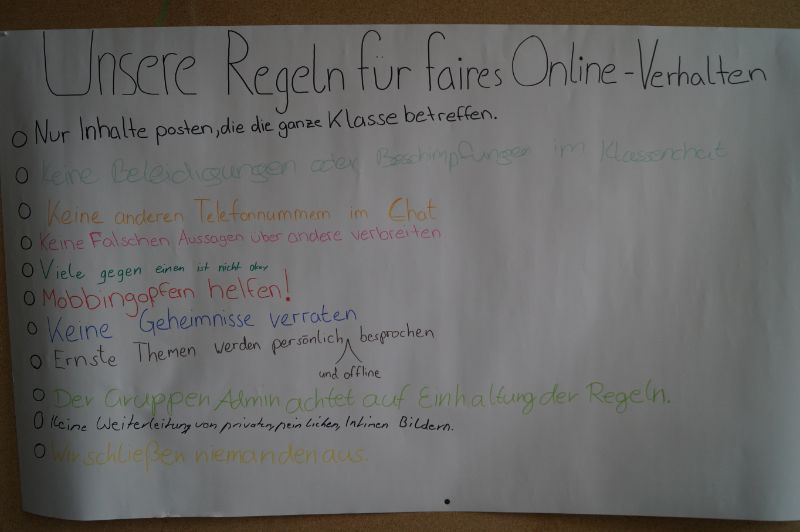 Unsere Regeln für faires Online-Verhalten
Nur Inhalte posten, die die ganze Klasse betreffen.
Keine Beleidigungen oder Beschimpfungen im Klassenchat
Keine anderen Telefonnummern im Chat
Keine Falschen Aussagen über andere verbreiten
Viele gegen einen ist nicht okay
Mobbingopfern helfen!
Keine Geheimnisse verraten
Ernste Themen werden persönlich besprochen
und offline
Der Gruppen Admin achtet auf Einhaltung der Regeln.
Keine Weiterleitung von privaten, peinlichen, Intimen Bildern.
Wir schließen niemanden aus.